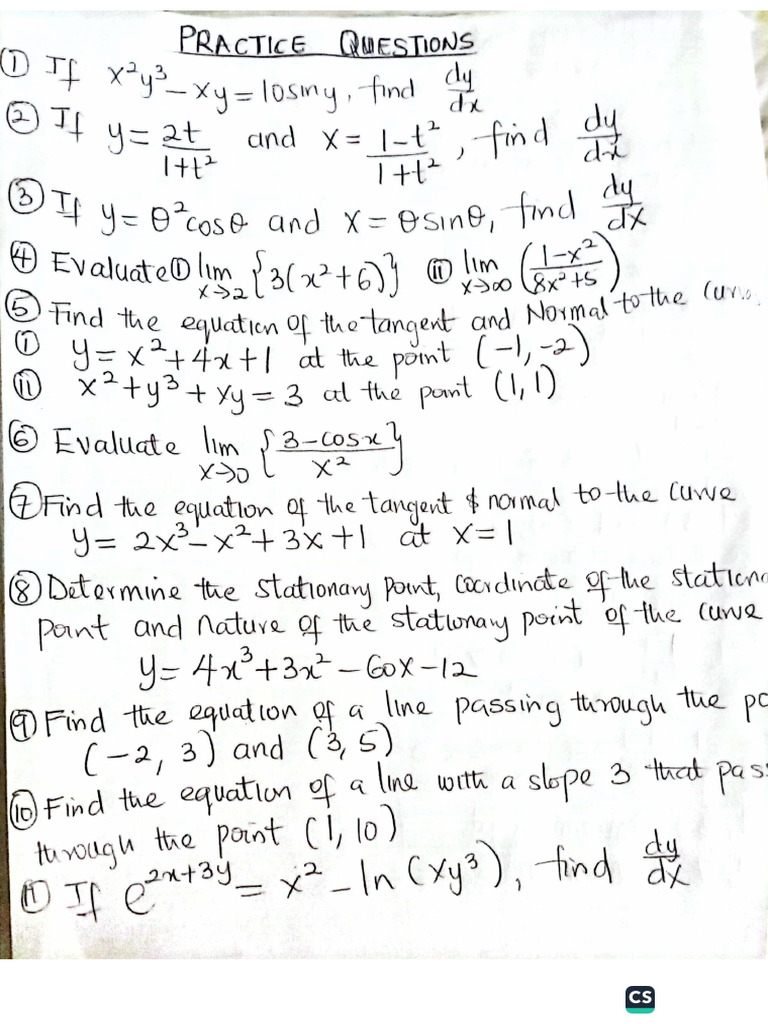 PRACTICE QUESTIONS
① If x²y³ - xy = 10siny, find dy/dx
② If y = 2t/1+t² and x = 1-t²/1+t², find dy/dx
③ If y = θ²cosθ and x = θsinθ, find dy/dx
④ Evaluate ⓘ lim x→2 {3(x²+6)} ⓘⓘ lim x→∞ (1-x²/8x²+5)
⑤ Find the equation of the tangent and Normal to the
ⓘ y = x²+4x+1 at the point (-1, -2)
ⓘⓘ x²+y³+xy = 3 at the point (1, 1)
⑥ Evaluate lim x→0 {3-cosx/x²}
⑦ Find the equation of the tangent & normal to the curve
y = 2x³-x²+3x+1 at x=1
⑧ Determine the stationary point, coordinate of the
point and nature of the stationary point of the curve
y = 4x³+3x²-60x-12
⑨ Find the equation of a line passing through the
(-2, 3) and (3, 5)
⑩ Find the equation of a line with a slope 3 that
through the point (1, 10)
⑪ If e^2x+3y = x² - ln(xy³), find dy/dx
CS